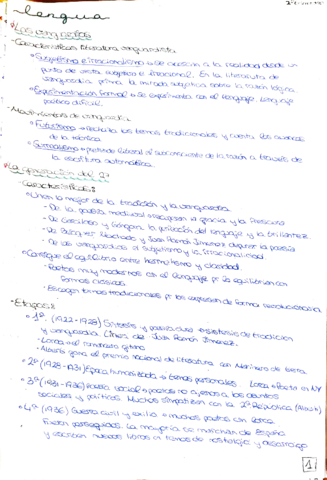 Lengua
Las vanguardias
- Características literatura vanguardista
• Subjetivismo e irracionalismo → se acercan a la realidad desde un
punto de vista subjetivo e irracional. En la literatura de
vanguardia prima la mirada subjetiva sobre la razón lógica.
• Experimentación formal → se experimenta con el lenguaje. Lenguaje
poético difícil.
- Movimientos de vanguardia
• Futurismo → rechaza los temas tradicionales y canta los avances
de la técnica.
• Surrealismo → pretende liberar el subconsciente de la razón a través de
la escritura automática.
La generación del 27
- Características:
• Unen lo mejor de la tradición y la vanguardia
- De la poesía medieval recogieron la gracia y la frescura
- De Garcilaso y Góngora, la perfección del lenguaje y la brillantez
- De Bécquer, Machado y Juan Ramón Jiménez depurar la poesía
- De las vanguardias el subjetivismo y la irracionalidad
• Consigue el equilibrio entre hermetismo y claridad.
- Poetas muy modernos con el lenguaje pero lo equilibran con
formas clásicas.
- Escogen temas tradicionales pero los expresan de forma revolucionaria
- Etapas:
• 1ª (1922-1928) Síntesis y poesía pura → síntesis de tradición
y vanguardia. Línea de Juan Ramón Jiménez.
- Lorca → el romancero gitano
- Alberti gana el premio nacional de literatura con Marinero en tierra
• 2ª (1928-1931) Época humanizada → temas personales. Lorca → Poeta en NY
• 3ª (1931-1936) Poesía social → poetas no ajenos a los asuntos
sociales y políticos. Muchos simpatizan con la 2ª República (Alberti)
• 4ª (1936) Guerra civil y exilio → muchos poetas con Lorca
fueron perseguidos. La mayoría se marchan de España
y escriben nuevos libros con temas de nostalgia y desarraigo
1